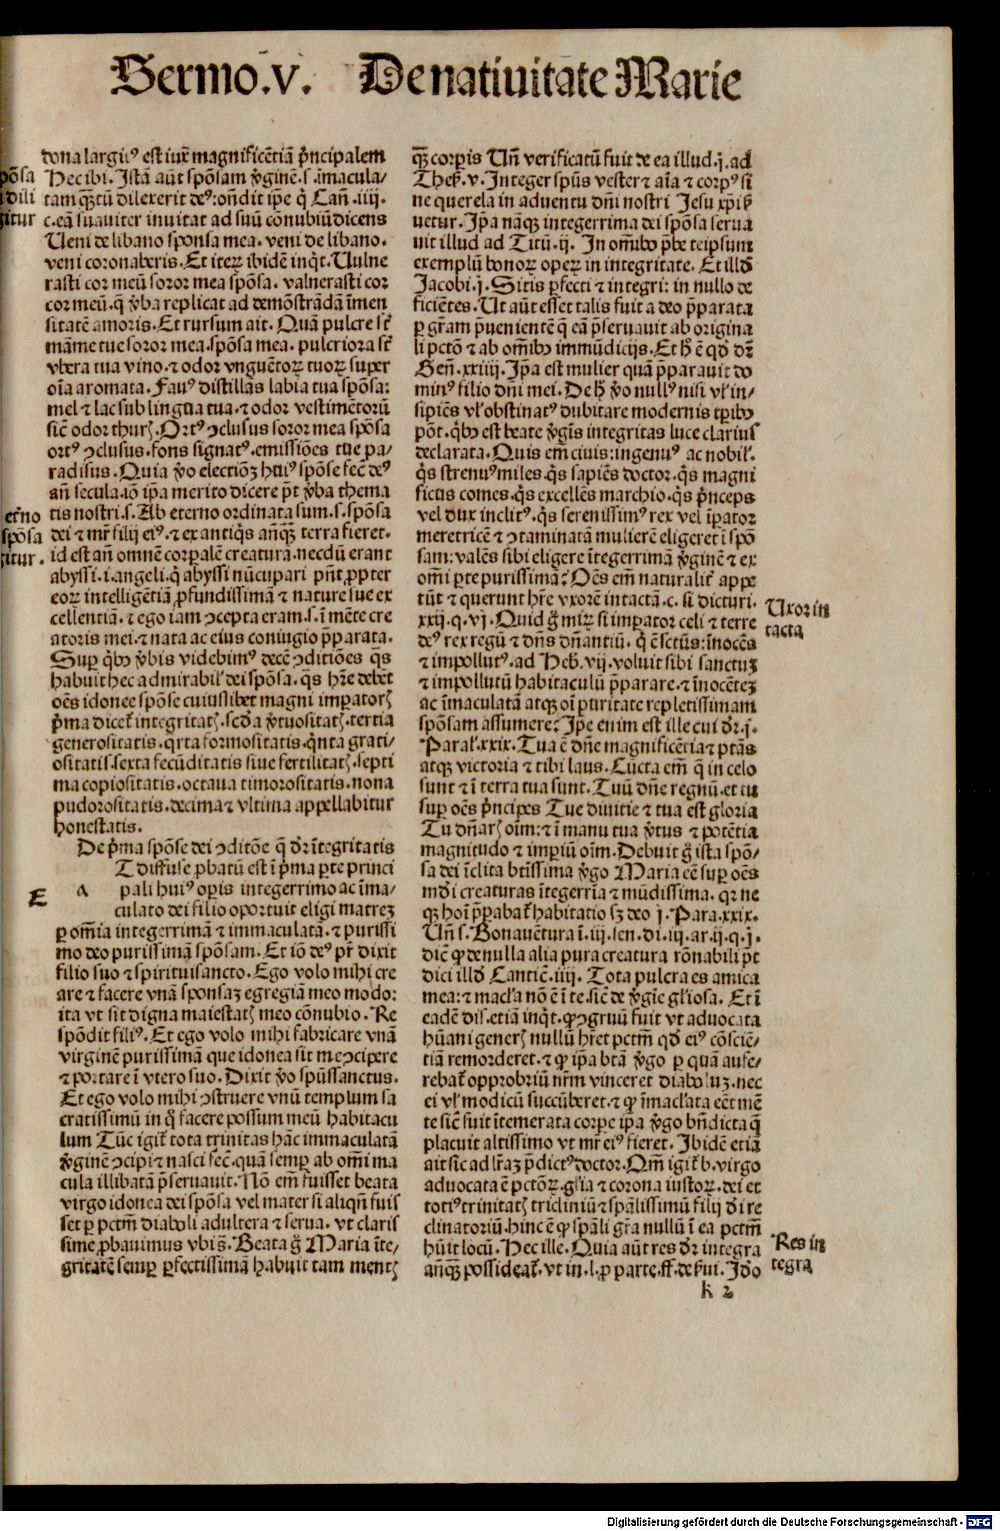 Sermo.v. De natiuitate Marie
dona largiꝰ est iux̄ magnificētiā pͥncipalem
Hec ibi. Istā aūt spōsam v̄ginē.s. īmacula/
tam qȝ̄tū dilexerit deꝰ: on̄dit ip̄e qͥ Can̄.iiij.
c. eā suauiter inuitat ad suū cōnubiū dicens
Ueni de libano sponsa mea. veni de libano.
veni coronaberis. Et iteꝝ ibidē inqͥt. Uulne
rasti cor meū soror mea spōsa. valnerasti cor
cor meū. q̄ v̄ba replicat ad demōstrādā īmen
sitatē amoris. Et rursum ait. Quā pulcre st̄
māme tue soror mea spōsa mea. pulcriora st̄
vbera tua vino. ⁊ odor vnguētoꝝ tuoꝝ super
oīa aromata. Fauꝰ distillās labia tua spōsa:
mel ⁊ lac sub lingua tua. ⁊ odor vestimētorū
sic̄ odor thurꝭ. Ortꝰ ꝯclusus soror mea spōsa
ortꝰ ꝯclusus. fons signatꝰ. emissiōes tue pa/
radisus. Quia v̄o electiōȝ huiꝰ spōse fec̄ deꝰ
an̄ secula. iō ip̄a merito dicere pt̄ v̄ba thema
tis nostri.s. Ab eterno ordinata sum.s. spōsa
dei ⁊ mr̄ filij eiꝰ. ⁊ ex antiqͥs an̄qȝ̄ terra fieret.
id est an̄ omnē corpalē creaturā. necdū erant
abyssi.i. angeli. qͥ abyssi nūcupari pn̄t ꝓpter
eoꝝ intelligētiā ꝓfundissimā ⁊ nature sue ex
cellentiā. ⁊ ego iam ꝯcepta eram.s. ī mēte cre
atoris mei. ⁊ nata ac eius coniugio p̄parata.
Suꝑ qͥbꝰ v̄bis videbimꝰ decē ꝯditiōes qͣs
habuit hec admirabil̄ dei spōsa. qͣs hr̄e debēt
oēs idonee spōse cuiuslibet magni impatorꝭ
pͥma dicet̄ integritatꝭ. sc̄da v̄tuositatꝭ. tertia
generositatis. qͣrta formositatis. qͥnta grati/
ositatis. sexta fecūditatis siue fertilitatꝭ. septi
ma copiositatis. octaua timorositatis. nona
pudorositatis. decima ⁊ vltima appellabitur
honestatis.
De pͥma spōse dei ꝯditōe q̄ dr̄ ītegritatis
T diffuse ꝓbatū est ī pͥma ꝑte princi
a pali huiꝰ opis integerrimo ac īma/
E
culato dei filio oportuit eligi matreȝ
ꝑ omnia integerrimā ⁊ immaculatā. ⁊ purissi
mo deo purissimā spōsam. Et iō deꝰ pr̄ dixit
filio suo ⁊ spirituisancto. Ego volo mihi cre
are ⁊ facere vnā sponsaȝ egregiā meo modo:
ita vt sit digna maiestatꝭ meo cōnubio. Re
spōdit filiꝰ. Et ego volo mihi fabricare vnā
virginē purissimā que idonea sit me ꝯcipere
⁊ portare ī vtero suo. Dixit v̄o spūssanctus.
Et ego volo mihi ꝯstruere vnū templum sa
cratissimū in qͦ facere possum meū habitacu
lum Tūc igit̄ tota trinitas hāc immaculatā
v̄ginē ꝯcipi ⁊ nasci fec̄. quā semꝑ ab omī ma
cula illibatā p̄seruauit. Nō em̄ fuisset beata
virgo idonea dei spōsa vel mater si aliqn̄ fuis
set ꝑ pctm̄ diaboli adultera ⁊ serua. vt claris
sime ꝓbauimus vbi s̄. Beata g̊ Maria īte/
gritatē semꝑ ꝑfectissimā habuit tam mentꝭ
pōsa
dili
gitur
et̄no
spōsa
gitur.
qȝ̄ corpis Un̄ verificatū fuit de ea illud.j. ad
Thes̄.v. Integer spūs vester ⁊ aīa ⁊ corpꝰ sī
ne querela in aduentu dn̄i nostri Jesu xp̄i ẜ
uetur. Ip̄a nāqȝ integerrima dei spōsa serua
uit illud ad Titū.ij. In omībꝰ p̄be teipsum
exemplū bonoꝝ opeꝝ in integritate. Et illd̄
Jacobi.j. Sitis ꝑfecti ⁊ integri: in nullo de
ficiētes. Ut aūt esset talis fuit a deo p̄parata
ꝑ gr̄am p̄uenientē q̄ eā p̄seruauit ab origina
li pctō ⁊ ab omībꝰ immūdicijs. Et h̄ ē qd̄ dr̄
Gen̄.xxiiij. Ip̄a est mulier quā p̄parauit do
minꝰ filio dn̄i mei. De h̄ v̄o nullꝰ nisi vl̄ in/
sipiēs vl̄ obstinatꝰ dubitare modernis tꝑibꝰ
pōt. qͥbꝰ est beate v̄gīs integritas luce clariꝰ
declarata. Quis em̄ ciuis: ingenuꝰ ac nobil̄.
qͥs strenuꝰ miles. qͥs sapiēs doctor. qͥs magni
ficus comes. qͥs excellēs marchio. qͥs pͥnceps
vel dux inclitꝰ. qͥs serenissimꝰ rex vel ip̄ator
meretricē ⁊ ꝯtaminatā mulierē eligeret ī spō
sam: valēs sibi eligere ītegerrimā v̄ginē ⁊ ex
omī ꝑte purissimā? Oēs em̄ naturalit̄ appe
tūt ⁊ querunt hr̄e vxorē intactā.c. si dicturi.
xxij.q.vj. Quid g̊ miꝝ si impator celi ⁊ terre
deꝰ rex regū ⁊ dn̄s dn̄antiū. qͥ ē sctūs: īnocēs
⁊ impollutꝰ. ad Heb̄.vij. voluit sibi sanctuȝ
⁊ impollutū habitaculū p̄parare. ⁊ īnocēteȝ
ac īmaculatā atqȝ oī puritate repletissimam
spōsam assumere? Ip̄e enim est ille cui dr̄.j.
Paral̄.xxix. Tua ē dn̄e magnificētia ⁊ ptās
atqȝ victoria ⁊ tibi laus. Cūcta em̄ q̄ in celo
sunt ⁊ ī terra tua sunt. Tuū dn̄e regnū. et tu
suꝑ oēs pͥncipes Tue diuitie ⁊ tua est gloria
Tu dn̄arꝭ oīm: ⁊ ī manu tua v̄tus ⁊ potētia
magnitudo ⁊ imperiū oīm. Debuit g̊ ista spō/
sa dei īclita bt̄issima v̄go Maria eē suꝑ oēs
mūdi creaturas ītegerrīa ⁊ mūdissima. qr ne
qȝ hoī p̄parabat̄ habitatio sȝ deo j. Para.xxix.
Un̄ s. Bonauētura ī.iij.sen.di.iij.ar.ij.q.j.
dic̄ ꝙ de nulla alia pura creatura rōnabili pt̄
dici illd̄ Cantic̄.iiij. Tota pulcra es amica
mea: ⁊ macl̄a nō ē ī te. sic̄ de v̄gīe gl̄iosa. Et ī
eadē dis̄. etiā inqͥt. ꝙ ꝯgruū fuit vt aduocata
hūani generꝭ nullū hr̄et pctm̄ qd̄ eiꝰ cōsciē/
tiā remorderet. ⁊ ꝙ ip̄a btā v̄go ꝑ quā aufe/
rebat̄ opprobriū nr̄m vinceret diaboluȝ. nec
ei vl̄ modicū succūberet. ⁊ ꝙ īmacl̄ata eēt mē
te sic̄ fuit ītemerata corpe ip̄a v̄go bn̄dicta q̄
placuit altissimo vt mr̄ eiꝰ fieret. Ibidē etiā
ait sic ad lr̄aȝ p̄dictꝰ doctor. Qm̄ igit̄ b. virgo
aduocata ē pctōꝝ. gl̄ia ⁊ corona iustoꝝ. dei et
totiꝰ trinitatꝭ tricliniū ⁊ spālissimū filij d̄i re
clinatoriū. hinc ē ꝙ spāli gr̄a nullū ī ea pctm̄
hūit locū. Hec ille. Quia aūt res dr̄ integra
an̄qȝ̄ possideat̄. vt in.l. ꝓ parte.ff. de ẜui. Id̄o
Uxor in
tacta
Res in
tegra
k 2
Digitalisierung gefördert durch die Deutsche Forschungsgemeinschaft - DFG